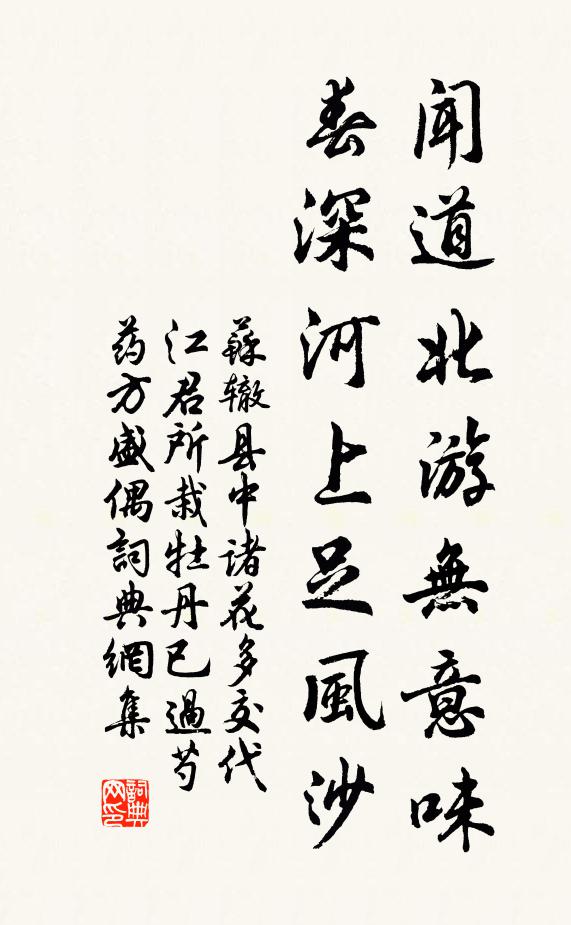 闻道北游無意味
春深河上足風沙
蘇辙县中诸花多交代
江君所栽牡丹已過芍
药方盛偶詞典網集
詞典网印